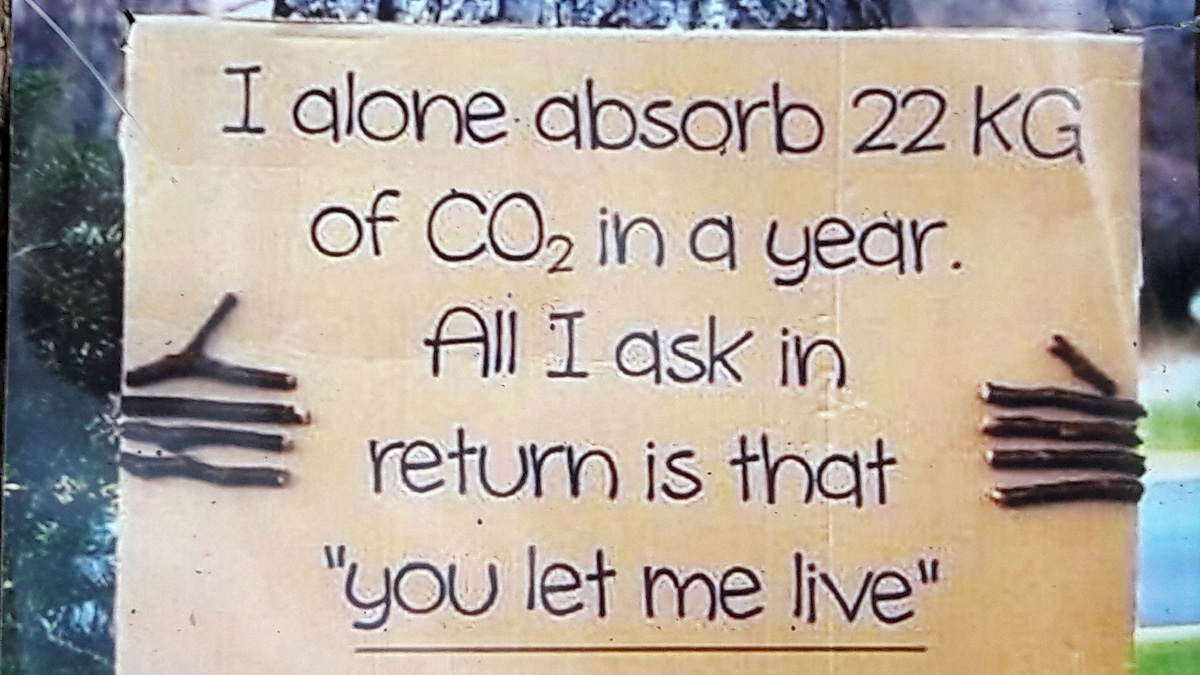 I alone absorb 22 KG
of CO₂ in a year.
All I ask in
return is that
"you let me live"